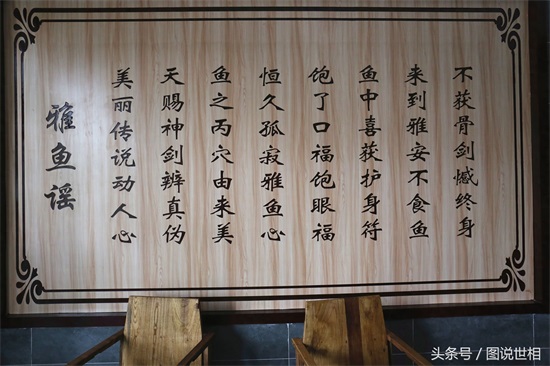 雅鱼谣
美丽传说动人心
天赐神剑辨真伪
鱼之丙穴由来美
恒久孤寂雅鱼心
饱了口福饱眼福
鱼中喜获护身符
来到雅安不食鱼
不获骨剑憾终身
头条号 / 图说世相